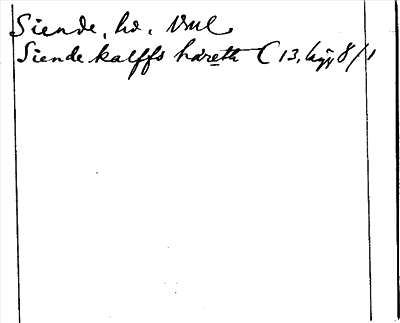 Siende, ho. Vml
Siende kalffs hóreth (13, kyy 8/1